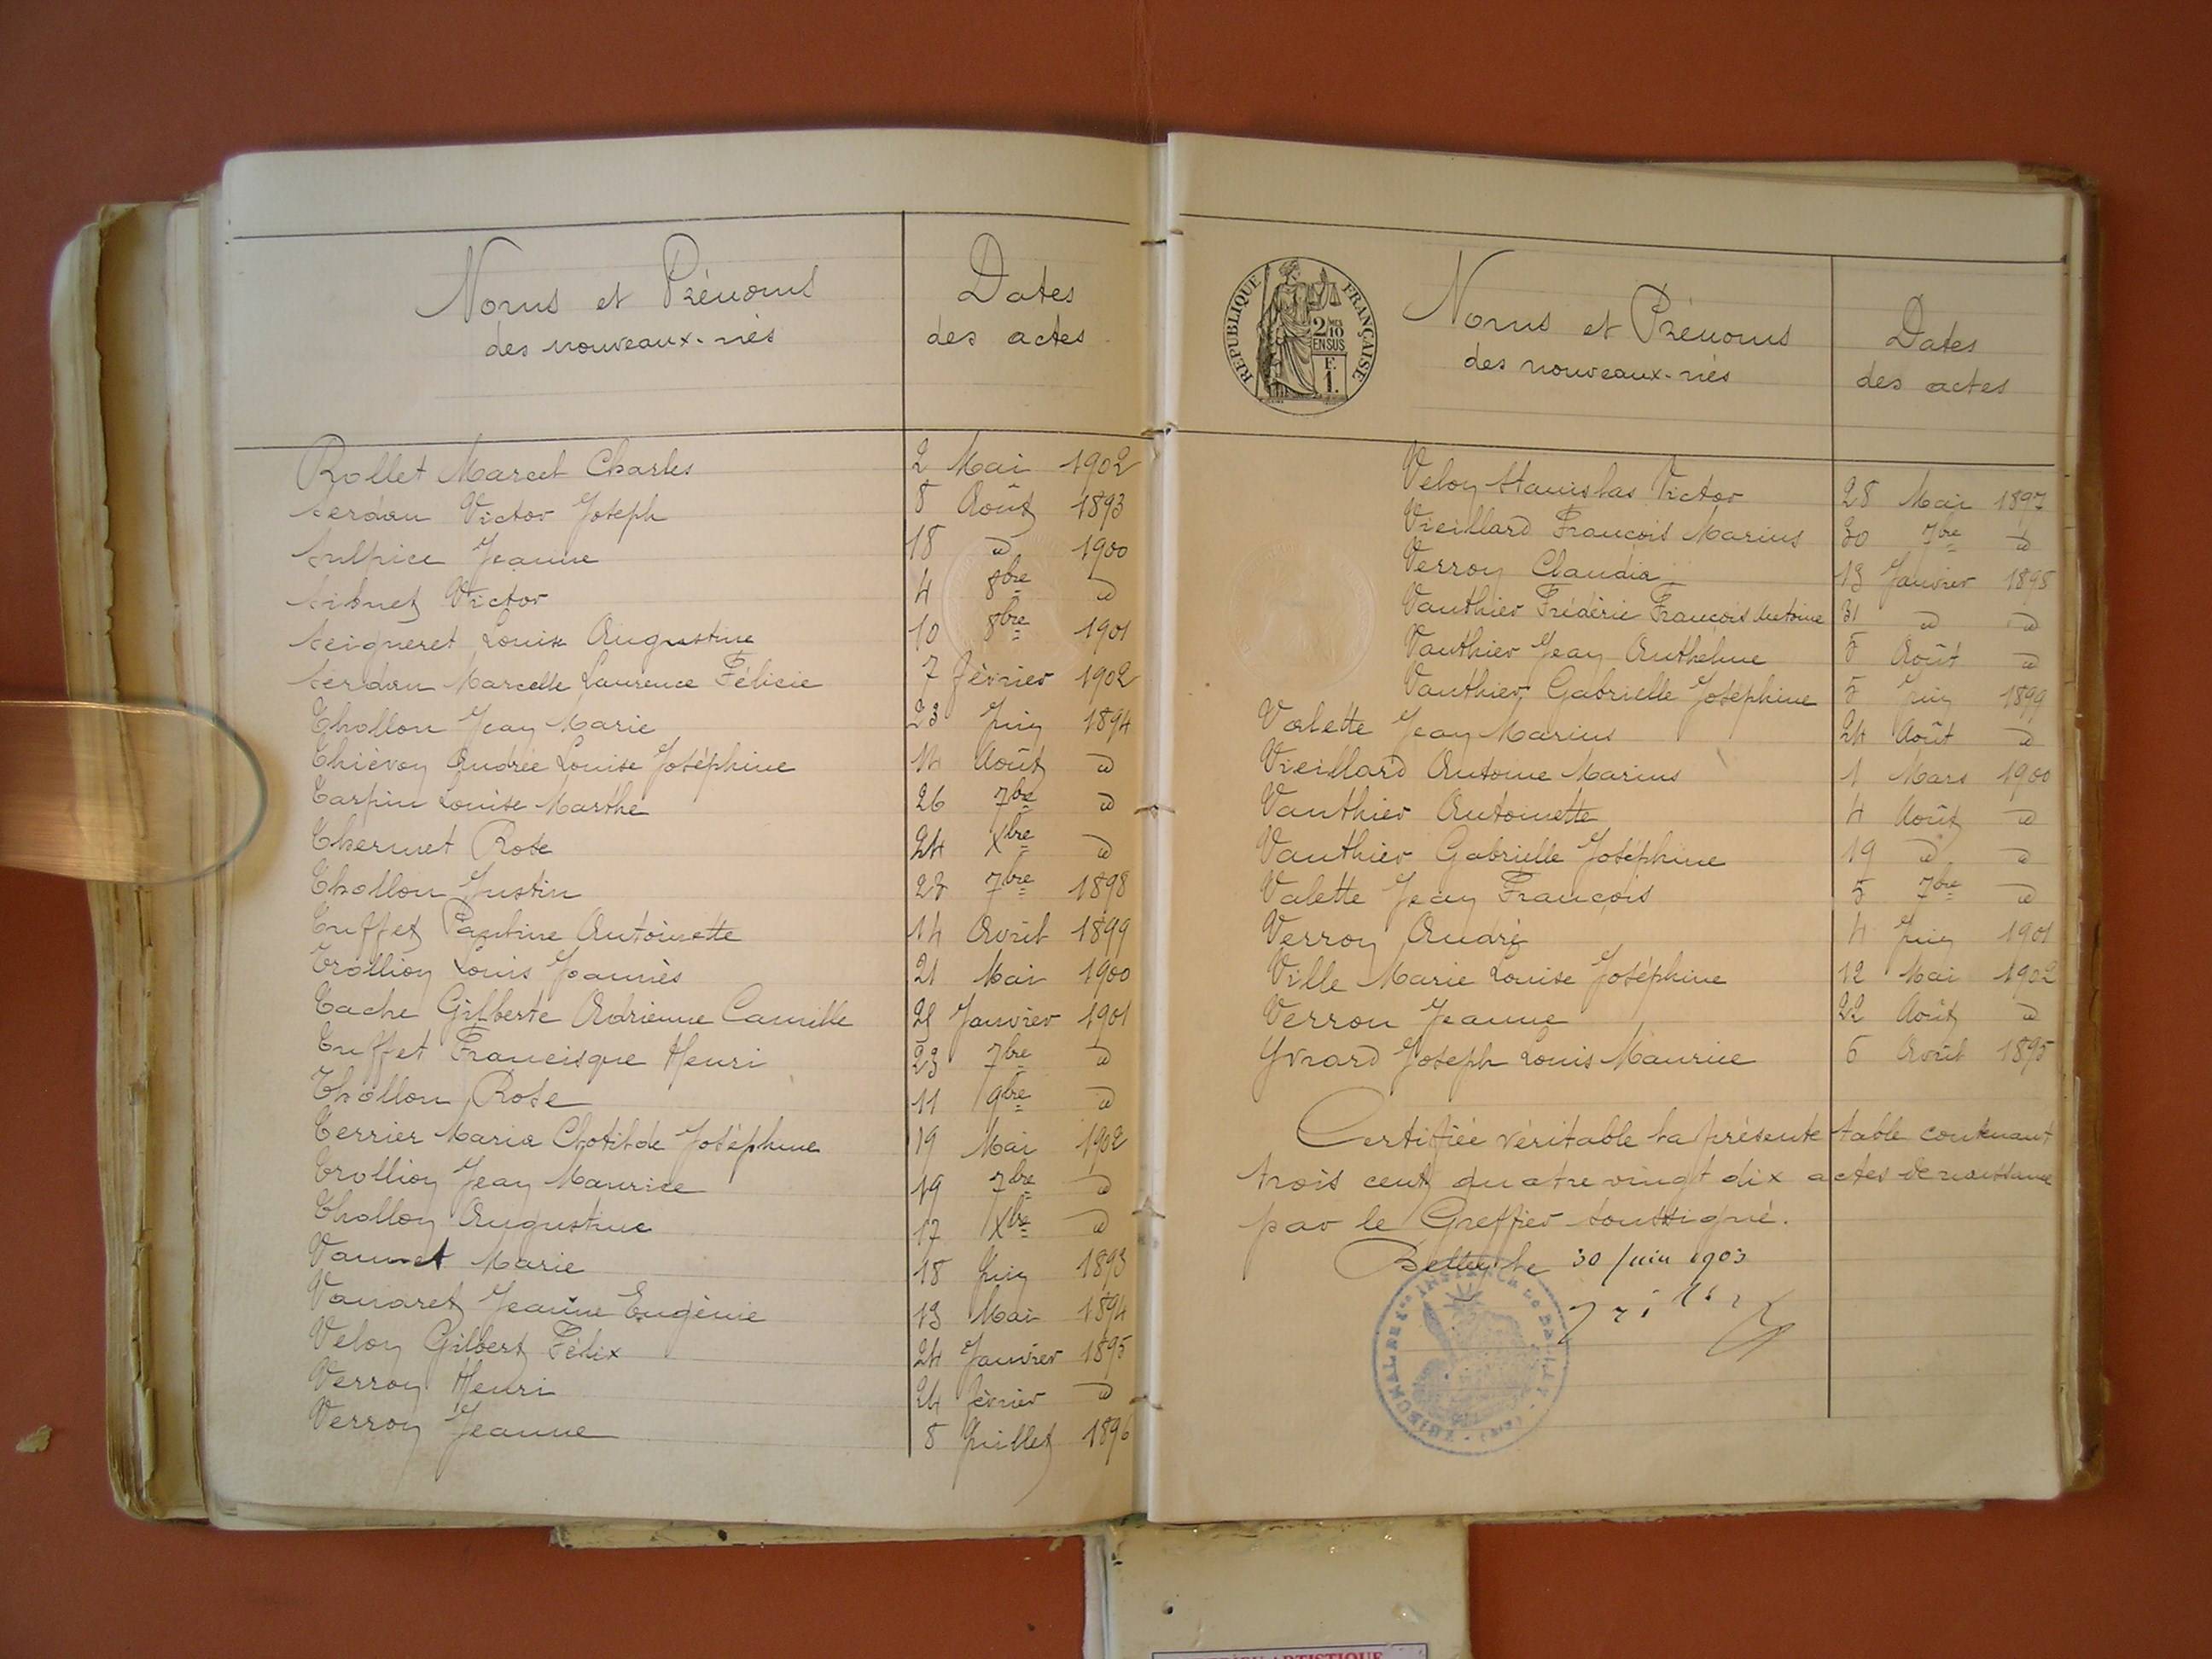 Noms et Prénoms
des nouveaux-nés
Dates
des actes
Rollet Marcel Charles 2 Mai 1902
Serdon Victor Joseph 8 Août 1893
Sulpice Jeanne 18 d 1900
Sibuet Victor 4 8bre d
Seigneret Louise Augustine 10 8bre 1901
Serdon Marcelle Laurence Félicie 7 février 1902
Thollon Jean Marie 23 Juin 1894
Thiévon Andrée Louise Joséphine 14 Août d
Tarpin Louise Marthe 26 7bre d
Thermet Rose 24 Xbre d
Thollon Justin 7bre 1898
Tuffet Pauline Antoinette 14 Avril 1899
Trollion Louis Joannès 21 Mai 1900
Tache Gilberte Adrienne Camille Janvier 1901
Tuffet Francisque Henri 23 7bre d
Thollon Rose 11 9bre d
Terrier Maria Clotilde Joséphine 19 Mai 1902
Trollion Jean Maurice 19 7bre d
Thollon Augustine 17 Xbre d
Vannet Marie 18 Juin 1893
Vanaret Jeanne Eugénie 13 Mai 1894
Velon Gilbert Félix 24 Janvier 1895
Verron Henri 24 février d
Verron Jeanne 8 Juillet 1896
REPUBLIQUE FRANÇAISE
2/10 MES
EN SUS
F.
1.
Noms et Prénoms
des nouveaux-nés
Dates
des actes
Velon Stanislas Victor 28 Mai 1897
Vieillard François Marius 30 7bre d
Verron Claudia 13 Janvier 1898
Vauthier Frédéric François Antoine 31 d d
Vauthier Jean Anthelme 5 Août d
Vauthier Gabrielle Joséphine 5 Juin 1899
Valette Jean Marius 24 Août d
Vieillard Antoine Marius 1 Mars 1900
Vauthier Antoinette 4 Août d
Vauthier Gabrielle Joséphine 19 d d
Valette Jean François 5 7bre d
Verron André 4 Juin 1901
Ville Marie Louise Joséphine 12 Mai 1902
Verron Jeanne 22 Août d
Yvrard Joseph Louis Maurice 6 Avril 1895
Certifiée véritable la présente table contenant
trois cent quatre vingt dix actes de naissance
par le Greffier soussigné.
Belley le 30 Juin 1903
TRIBUNAL DE 1re INSTANCE DE BELLEY (AIN)